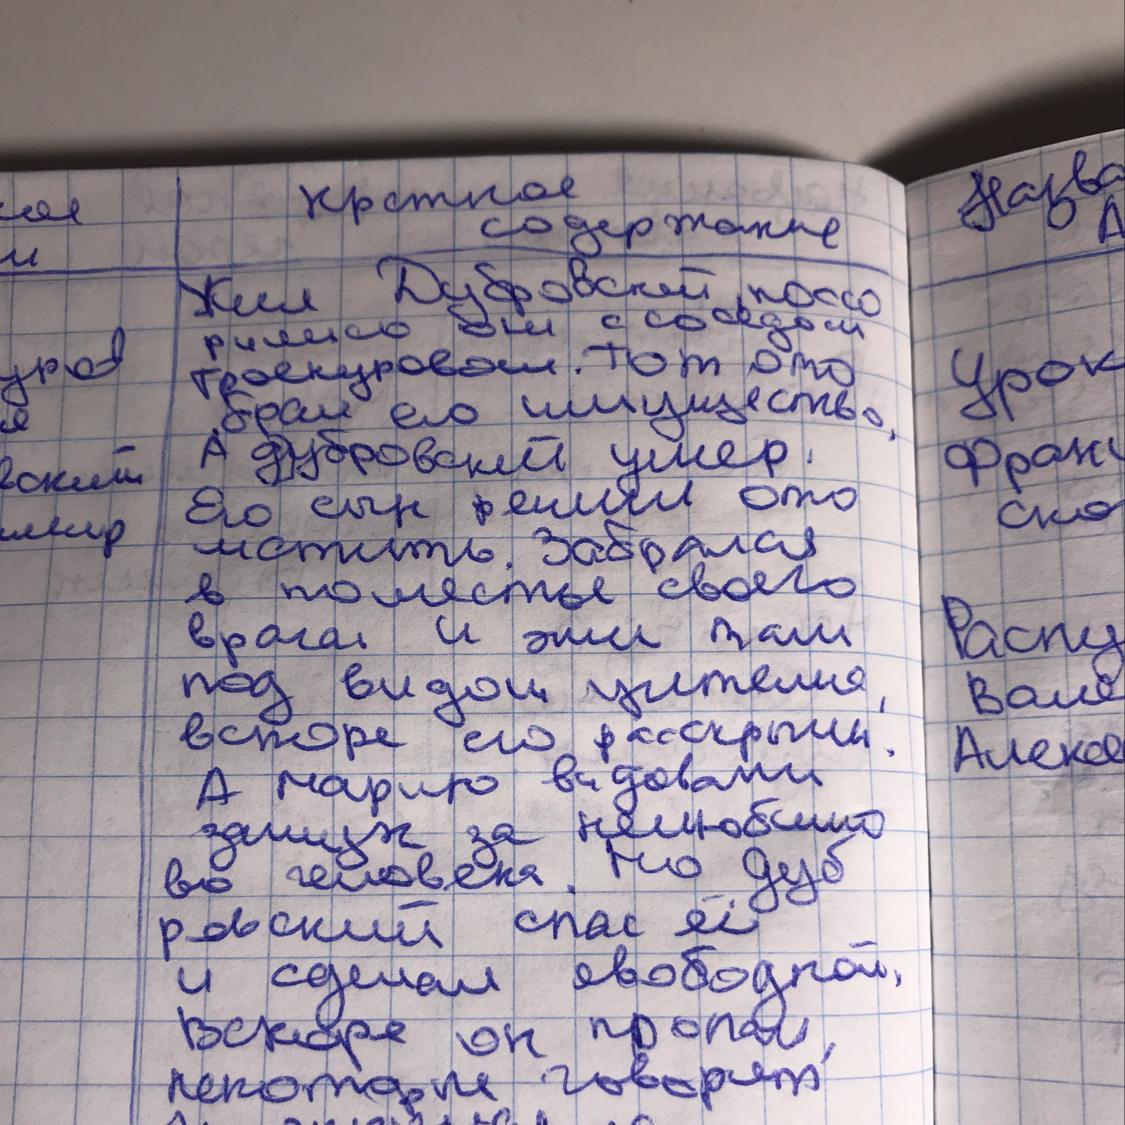 ное
и
Краткое
содержание
Жил Дубровский, поссо
рились они с соседом
Троекуровом. Тот ото
брал его имущество,
А Дубровский умер.
Его сын решил ото
мстить. Забрался
в поместье своего
врага. И жил там
под видом учителя,
вскоре его расскрыли.
А Марию выдовали
замуж за нелюбимо
во человека. Но Дуб
ровский спас её
и сделал свободной,
Вскоре он пропал,
некоторые говорят
уров
я
вский
имир
Назва
А
Урок
Франц
ско
Распу
Вале
Алексе